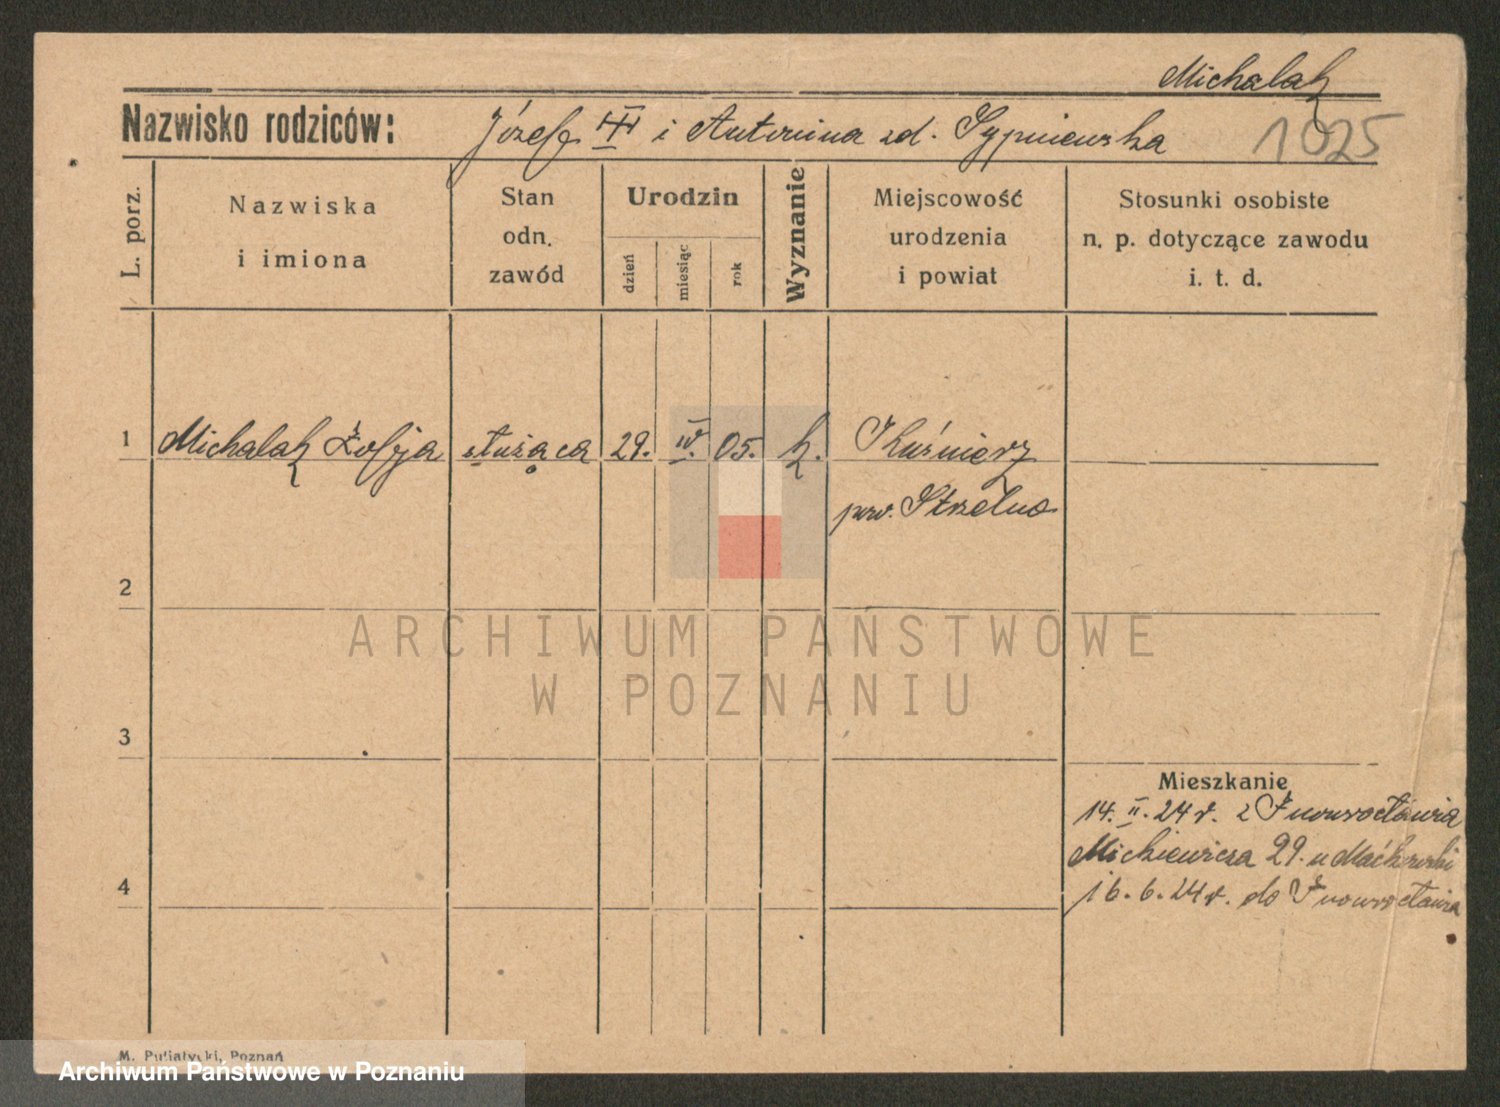 Michalak
Nazwisko rodziców: Józef i Antonina zd. Sypniewska
1025
L. porz.
Nazwiska
i imiona
Stan
odn.
zawód
Urodzin
dzień
miesiąc
rok
Wyznanie
Miejscowość
urodzenia
i powiat
Stosunki osobiste
n. p. dotyczące zawodu
i. t. d.
1 Michalak Zofja służąca 29. IV. 05. k. Kuśnierz
pow. Strzelno
2
3
4
Mieszkanie
14. II. 24 r. z Inowrocławia
Mickiewicza 29. u Maćkowski
16. 6. 24 r. do Inowrocławia
ARCHIWUM PAŃSTWOWE
W POZNANIU
M. Putiatycki, Poznań
Archiwum Państwowe w Poznaniu